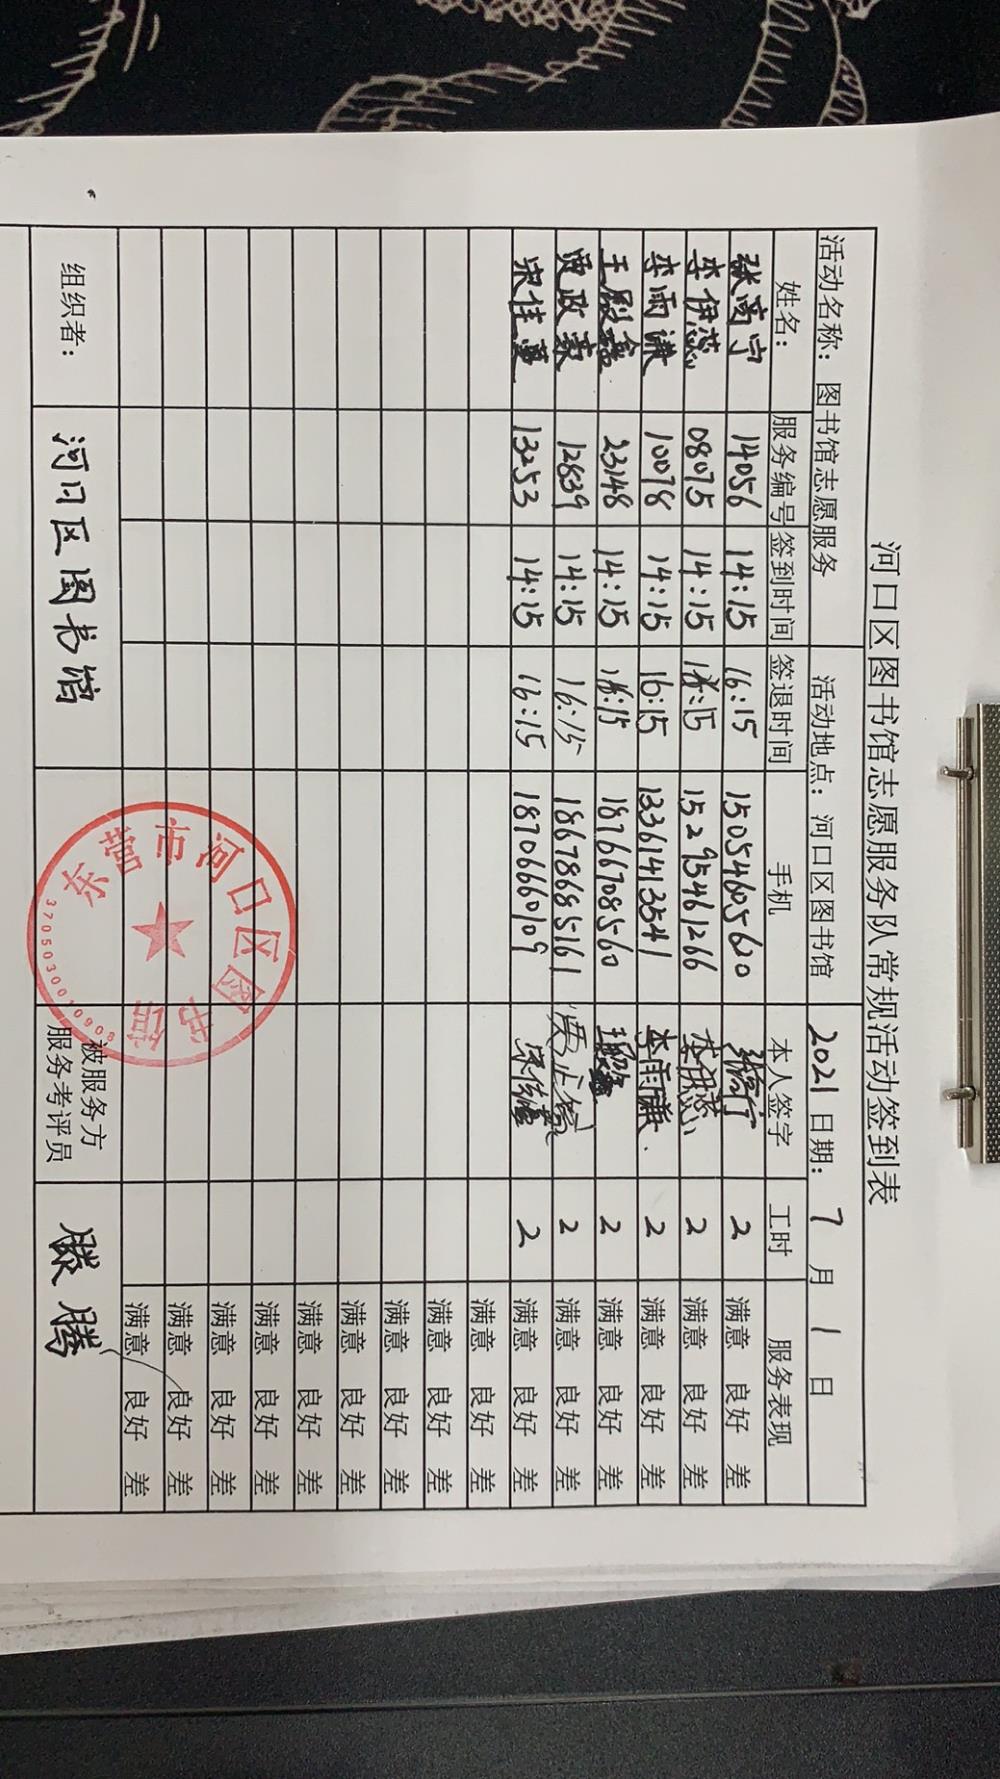 河口区图书馆志愿服务队常规活动签到表
活动名称：图书馆志愿服务 活动地点：河口区图书馆 2021日期：7月1日
姓名： 服务编号 签到时间 签退时间 手机 本人签字 工时 服务表现
张高宁 14056 14:15 16:15 15054605620 张高宁 2 满意 良好 差
李伊蕊 08075 14:15 16:15 15295461266 李伊蕊 2 满意 良好 差
李雨谦 10078 14:15 16:15 13361413541 李雨谦 2 满意 良好 差
王殿鑫 23148 14:15 16:15 18766708560 王殿鑫 2 满意 良好 差
贾政豪 12839 14:15 16:15 18678685161 2 满意 良好 差
宋佳蔓 13253 14:15 16:15 18706660109 宋佳蔓 2 满意 良好 差
满意 良好 差
满意 良好 差
满意 良好 差
满意 良好 差
满意 良好 差
满意 良好 差
满意 良好 差
满意 良好 差
满意 良好 差
组织者： 河口区图书馆 被服务方
服务考评员 滕腾
东营市河口区图书馆
3705030010608